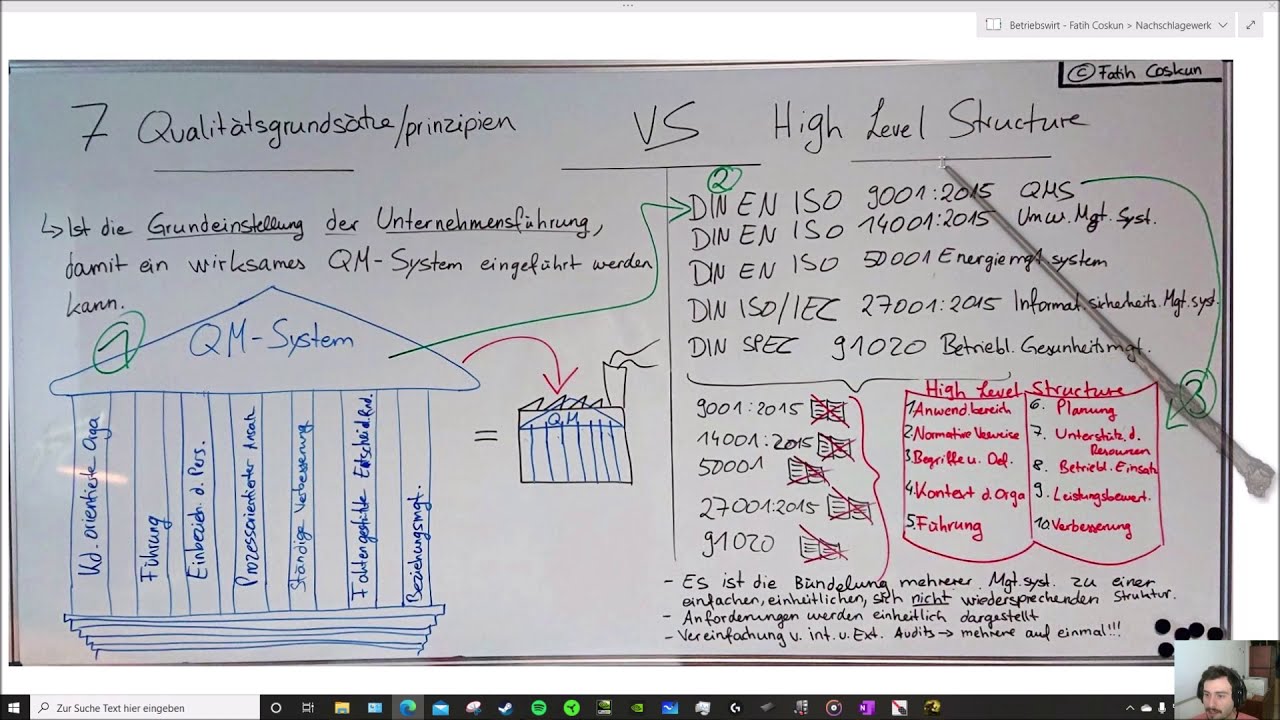 Betriebswirt - Fatih Coskun > Nachschlagewerk
© Fatih Coskun
7 Qualitätsgrundsätze/prinzipien
VS
High Level Structure
↳ Ist die Grundeinstellung der Unternehmensführung,
damit ein wirksames QM-System eingeführt werden
kann.
1
QM-System
Kd. orientierte Orga
Führung
Einbezieh. d. Pers.
Prozessorientierter Ansatz
Ständige Verbesserung
Faktengestützte Entscheid.find.
Beziehungsmgt.
=
QM
2
DIN EN ISO 9001:2015 QMS
DIN EN ISO 14001:2015 Umw. Mgt. Syst.
DIN EN ISO 50001 Energiemgt.system
DIN ISO/IEC 27001:2015 Informat.sicherheits.Mgt.syst.
DIN SPEC 91020 Betriebl. Gesunheitsmgt.
9001:2015
14001:2015
50001
27001:2015
91020
3
High Level Structure
1. Anwend.bereich
2. Normative Verweise
3. Begriffe u. Def.
4. Kontext d. Orga
5. Führung
6. Planung
7. Unterstütz. d.
Resourcen
8. Betriebl. Einsatz
9. Leistungsbewert.
10. Verbesserung
- Es ist die Bündelung mehrerer Mgt.syst. zu einer
einfachen, einheitlichen, sich nicht wiedersprechenden Struktur.
- Anforderungen werden einheitlich dargestellt
- Vereinfachung v. int. u. Ext. Audits → mehrere auf einmal!!!
Zur Suche Text hier eingeben